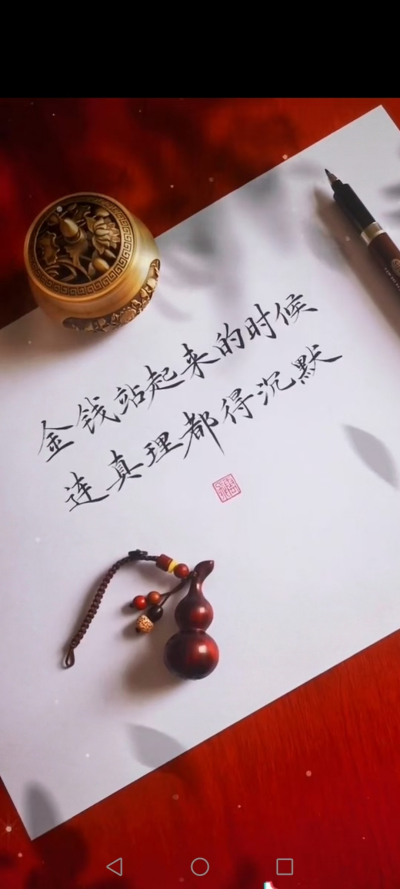 金钱站起来的时候
连真理都得沉默